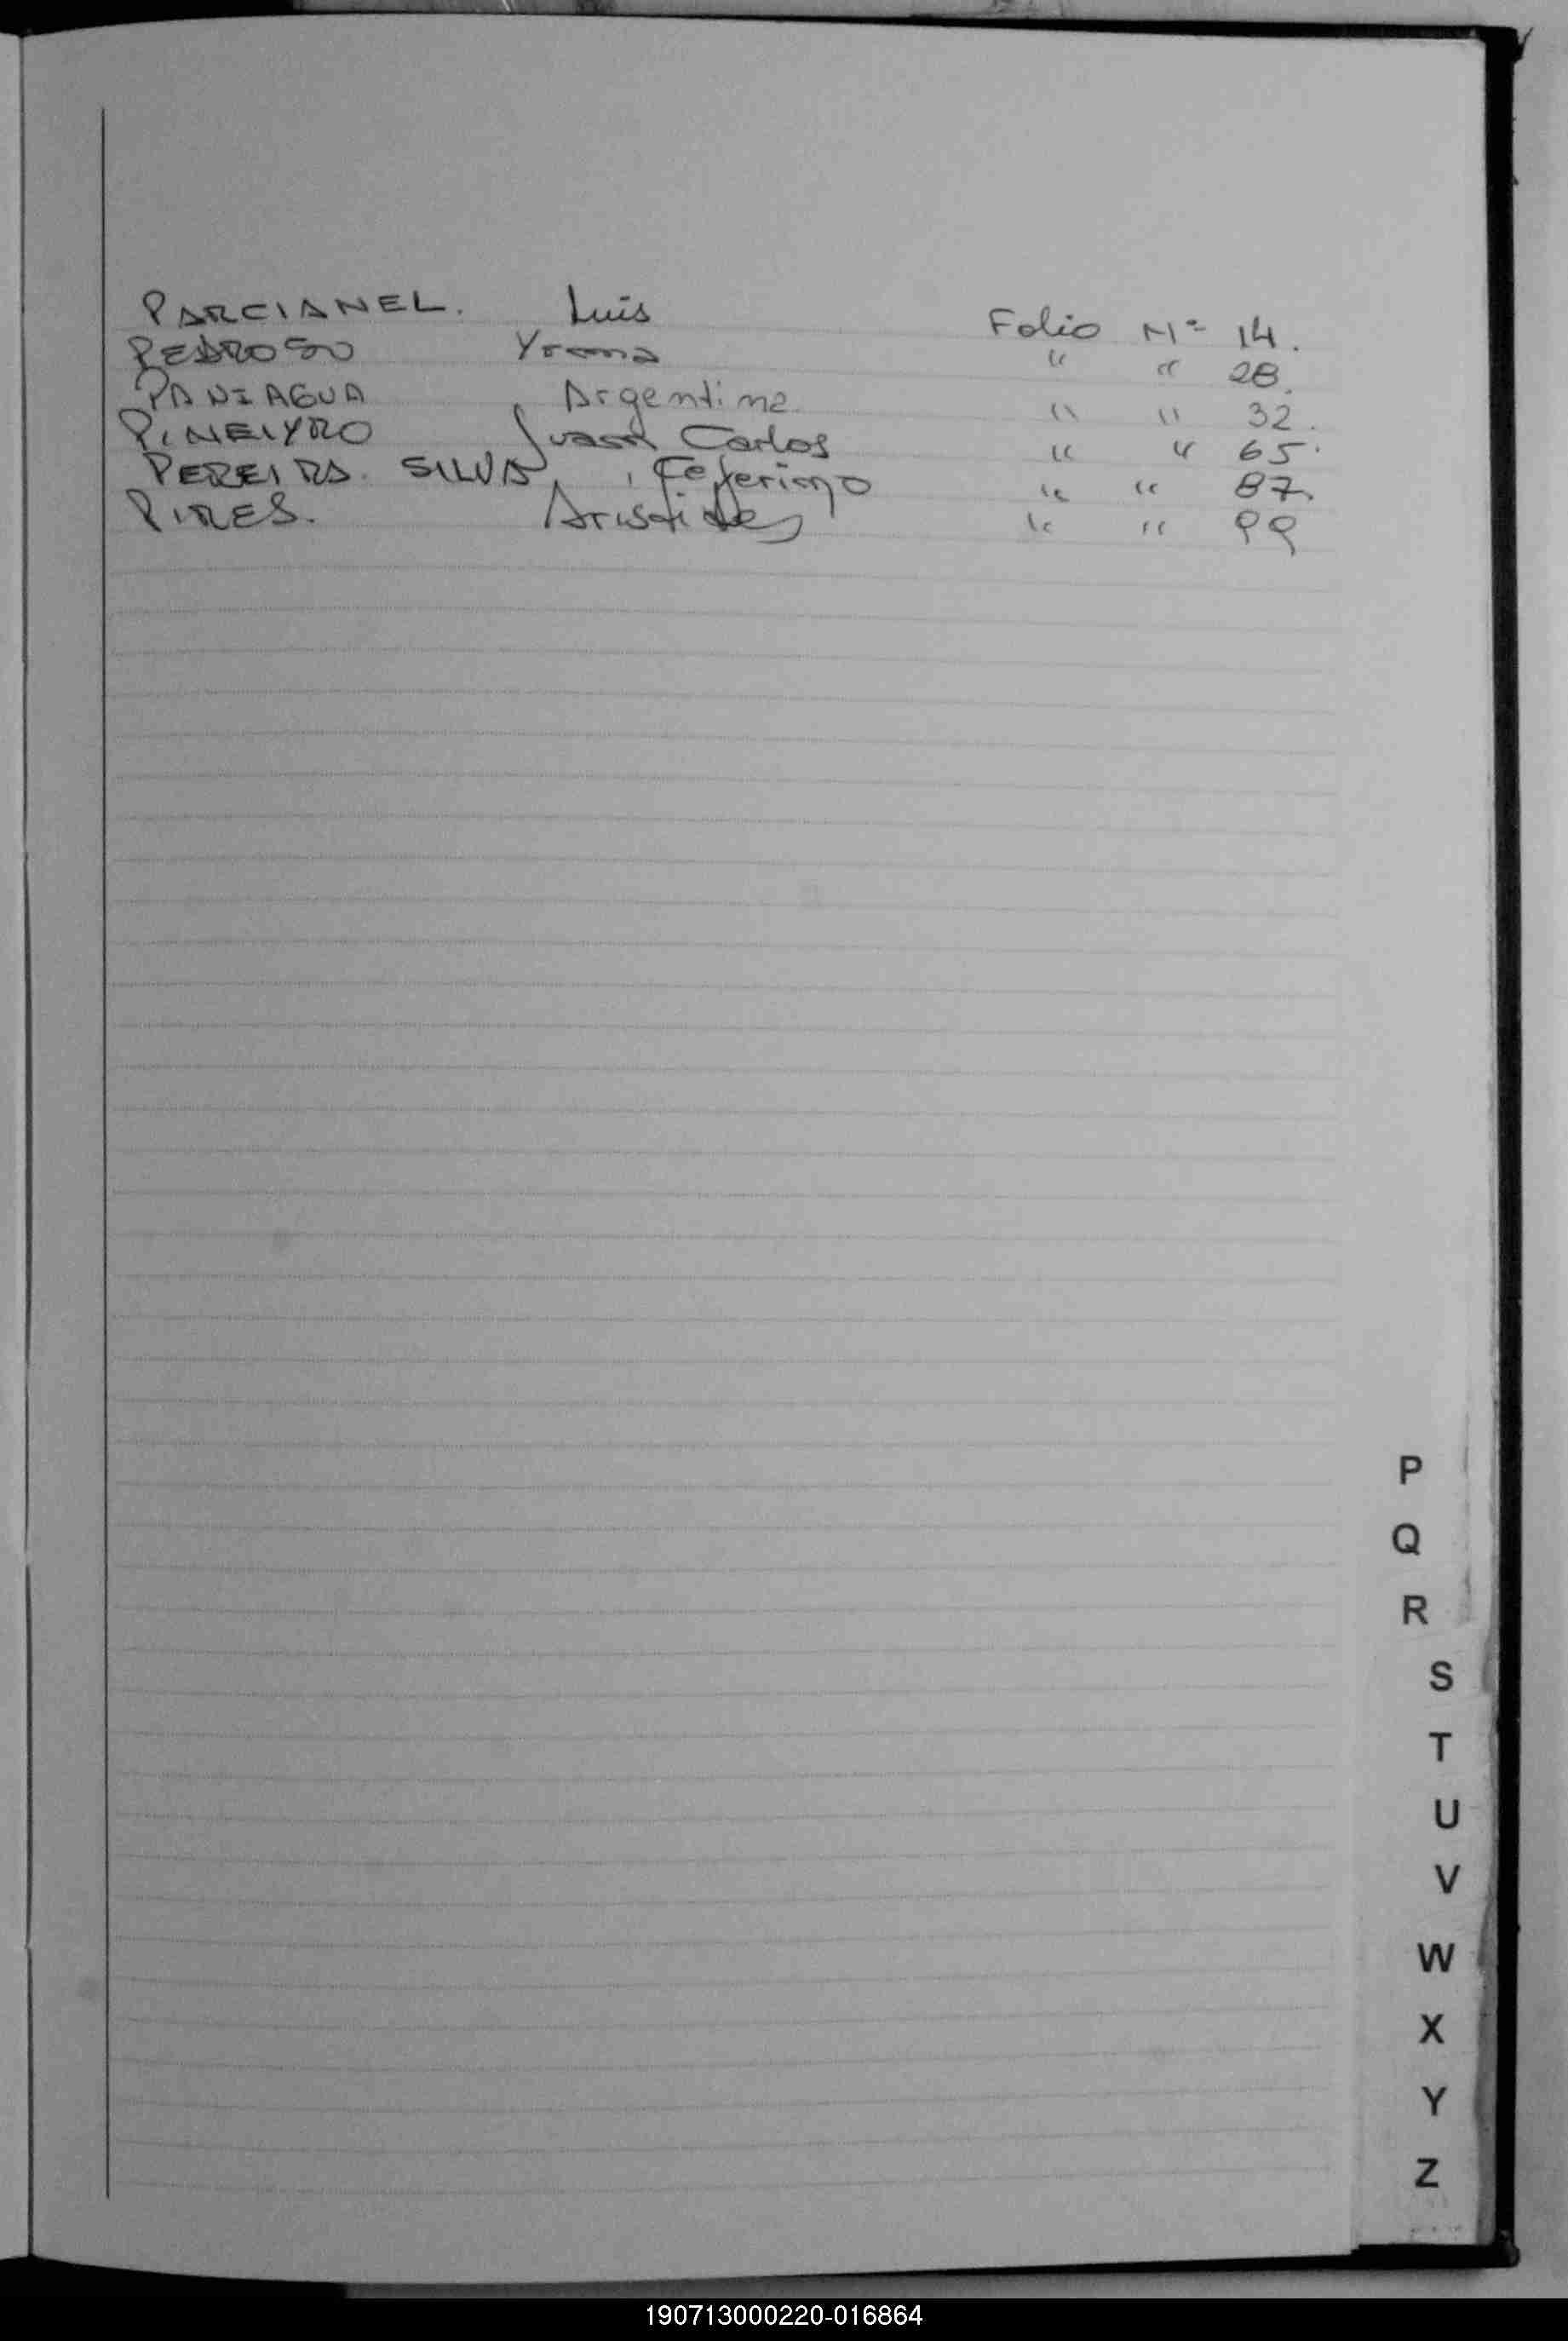 PARCIANEL. Luis Folio Nº 14.
PEDROSO Yrma " " 28.
PANIAGUA Argentina " " 32.
PINEIYRO Juan Carlos " " 65.
PEREIRA. SILVA, Ceferino " " 87.
PIRES. Aristides " " 99
P
Q
R
S
T
U
V
W
X
Y
Z
190713000220-016864